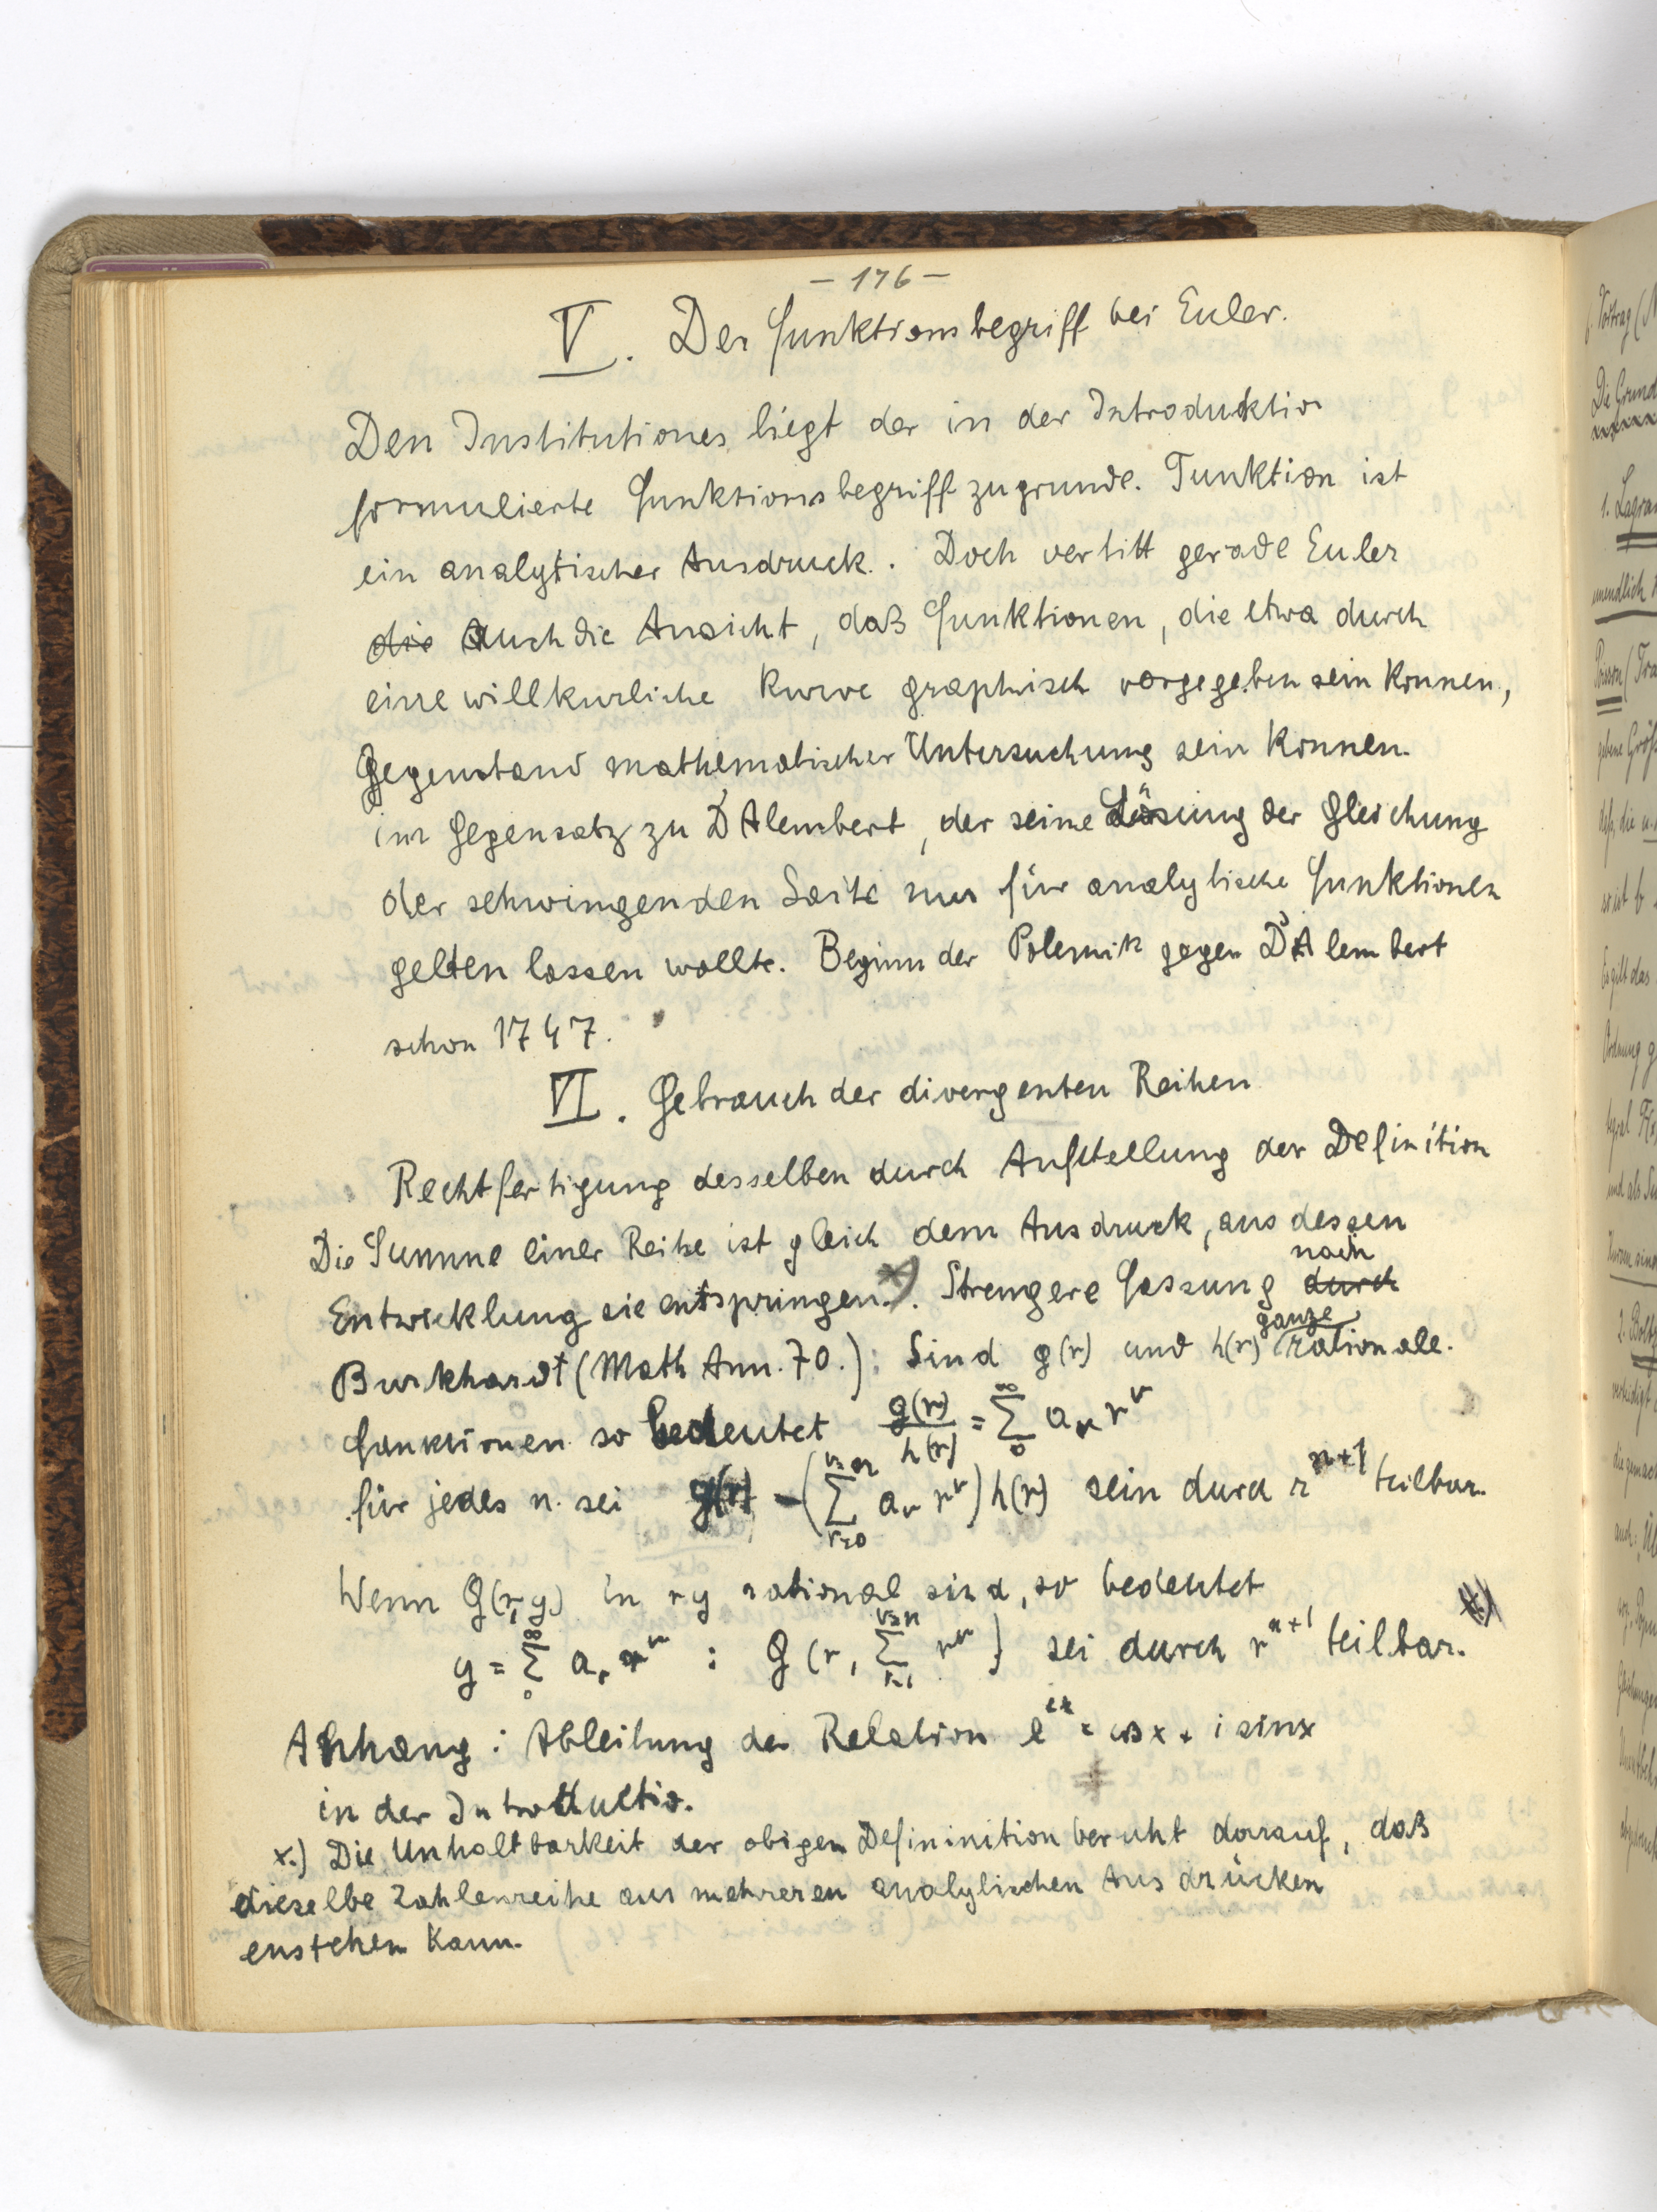 – 176 –
V. Der Funktionsbegriff bei Euler.
Den Institutiones liegt der in der Introduktio
formulierte Funktionsbegriff zugrunde. Funktion ist
ein analytischer Ausdruck. Doch vertitt gerade Euler
die auch die Ansicht, daß Funktionen, die etwa durch
eine willkurliche Kurve graphisch vorgegeben sein konnen,
Gegenstand mathematischer Untersuchung sein konnen.
im Gegensatz zu D'Alembert, der seine Lösung der Gleichung
der schwingenden Saite nur für analytische Funktionen
gelten lassen wollte. Beginn der Polemik gegen D'Alembert
schon 1747.
VI. Gebrauch der divergenten Reihen
Rechtfertigung desselben durch Aufstellung der Definition
Die Summe einer Reihe ist gleich dem Ausdruck, aus dessen
Entwicklung sie entspringen.*) Strengere Fassung durch nach
Burkhardt (Math Ann. 70.): Sind g(r) und h(r) ganze rationale.
Funktionen so bedeutet g(r)/h(r) = ∑_0^∞ a_ν r^ν
für jedes n. sei g(r) – (∑_{ν=0}^{ν=n} a_ν r^ν) h(r) sein durch r^{n+1} teilbar.
Wenn G(r,y) in r y rational sind, so bedeutet
y = ∑_0^∞ a_r r^ν : G(r, ∑_{r=1}^{ν=n} r^ν) sei durch r^{n+1} teilbar. *)
Anhang: Ableitung der Relation e^{ix} = cos x + i sin x
in der Introductio.
x.) Die Unhaltbarkeit der obigen Defininition beruht darauf, daß
dieselbe Zahlenreihe aus mehreren analytischen Ausdrücken
enstehen kann.